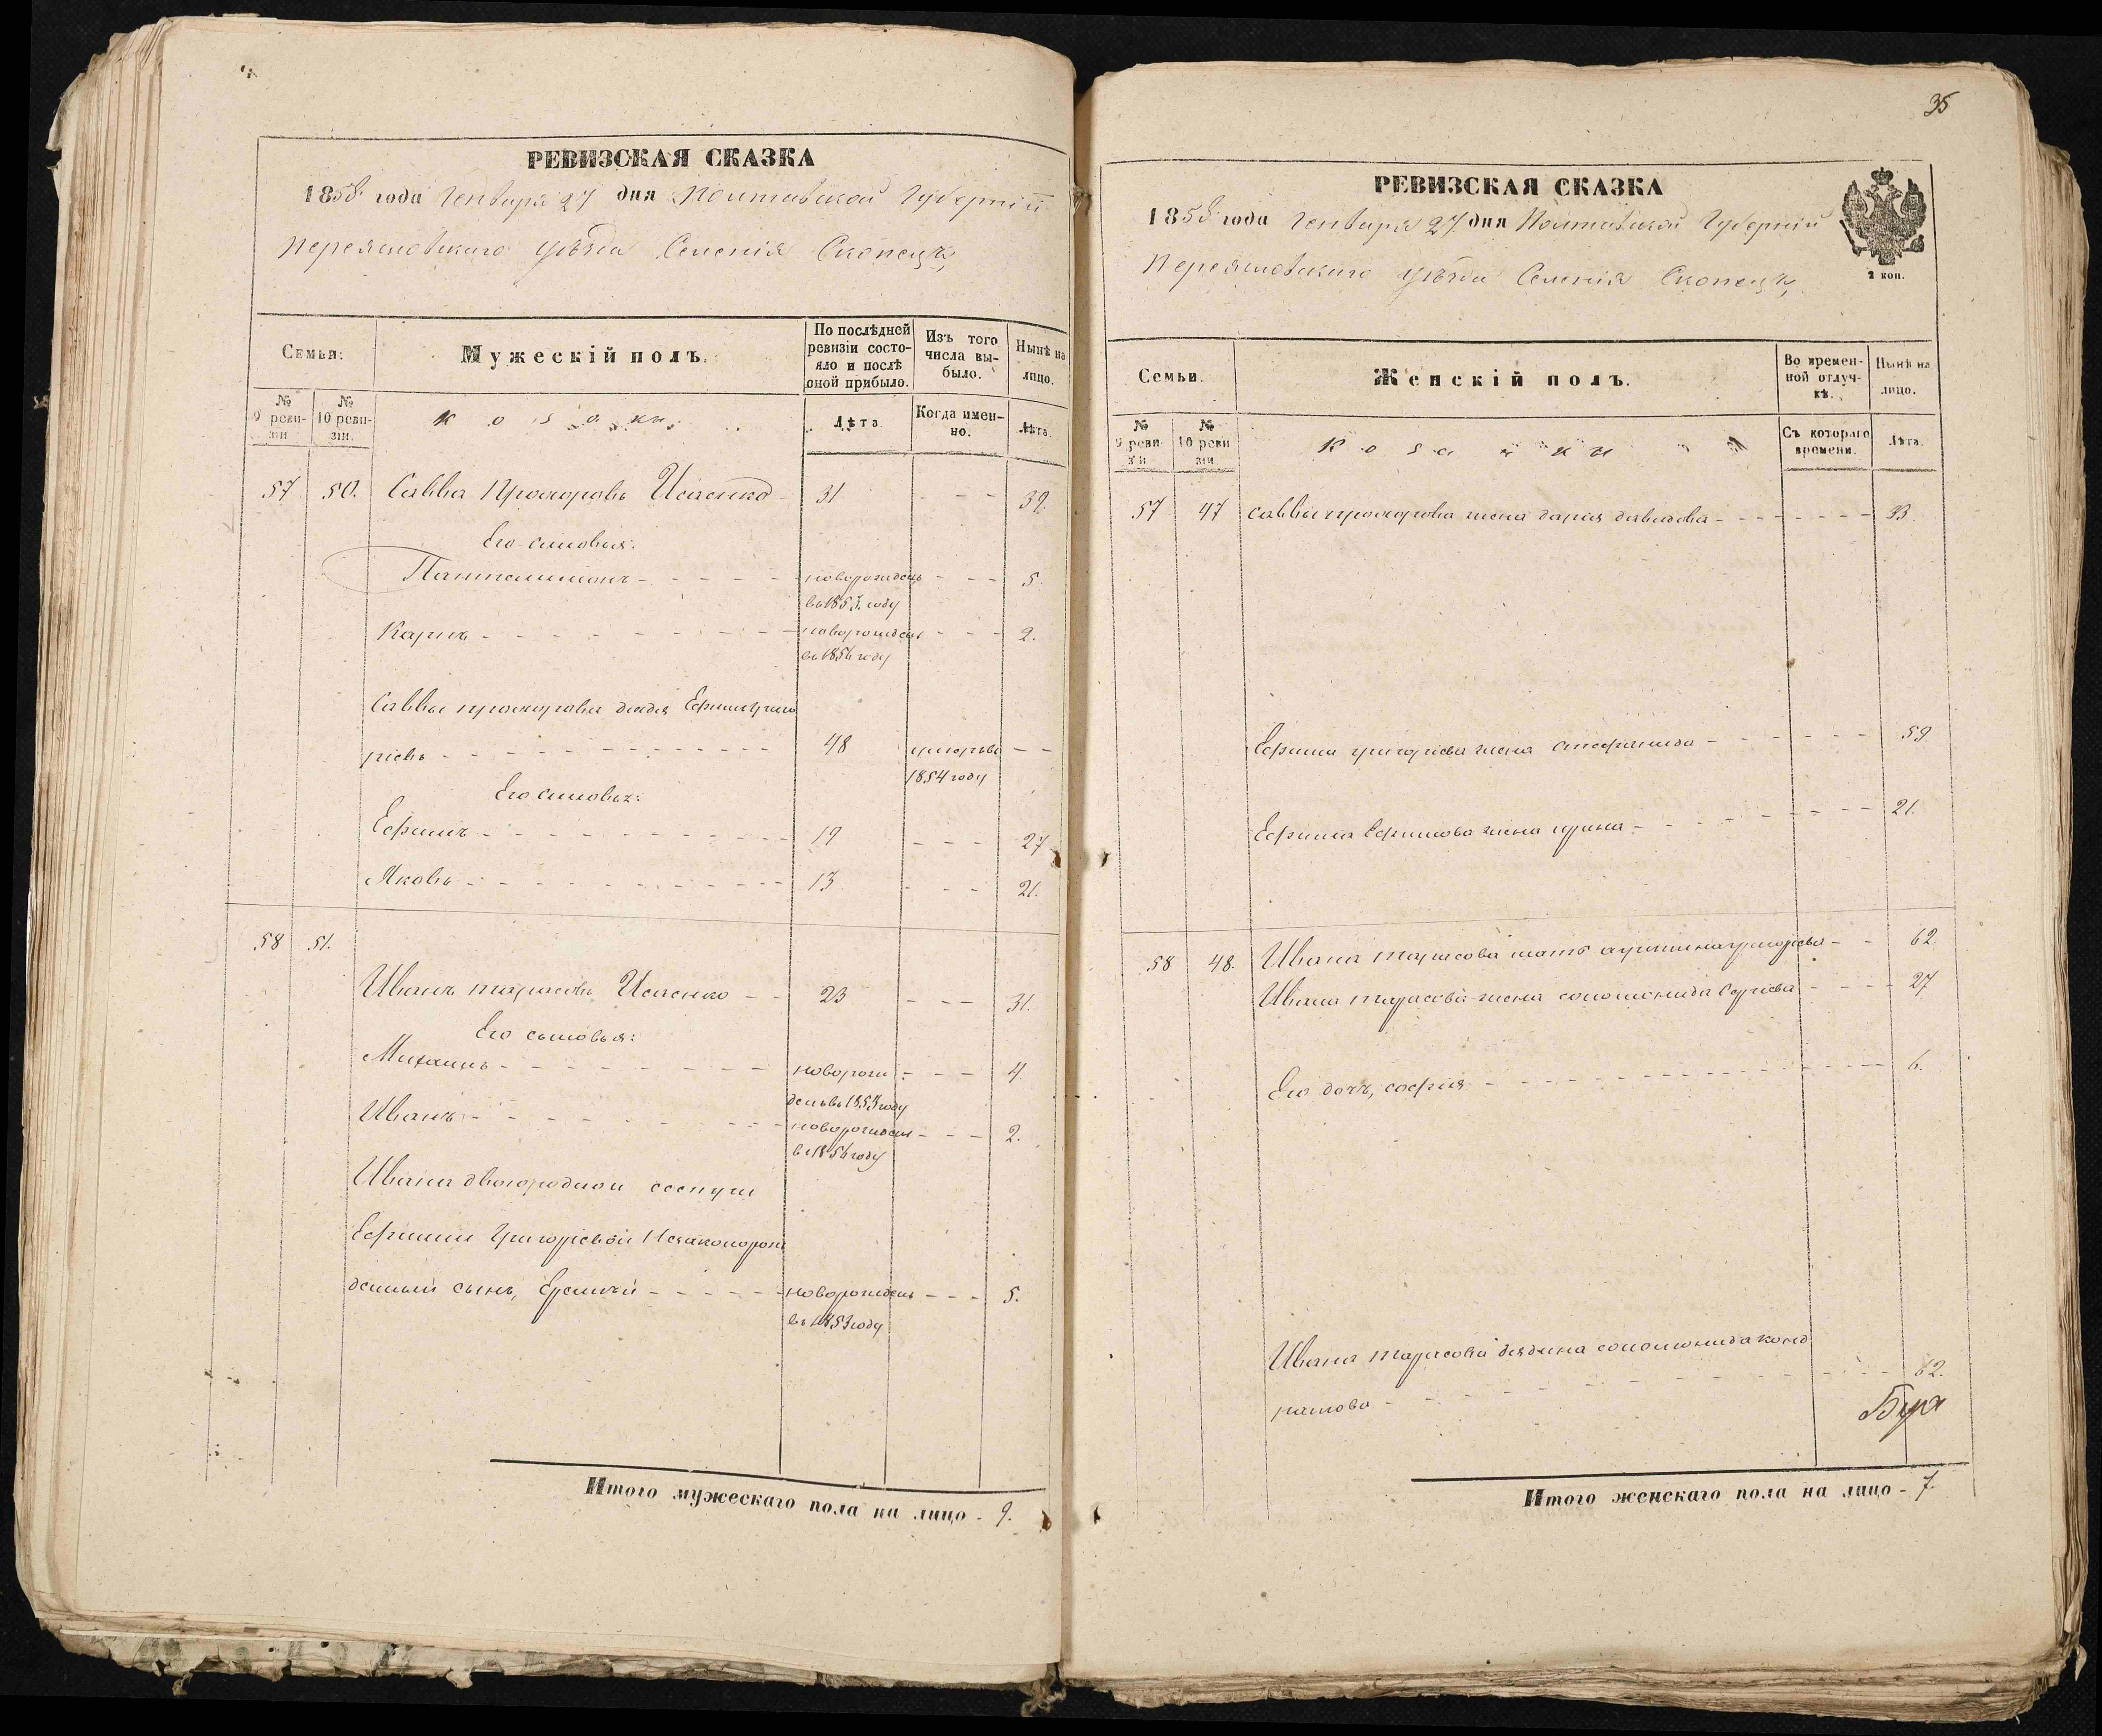 РЕВИЗСКАЯ СКАЗКА
1858 года Генваря 27 дня Полтавской Губерніи
Переясловскаго уѣзда Селенія Скопецкъ
Семьи:
Мужескій полъ.
По послѣдней ревизіи состояло и послѣ оной прибыло.
Изъ того числа выбыло.
Нынѣ на лицо.
№ 9 ревизіи
№ 10 ревизіи.
Козаки
Лѣта
Когда именно.
Лѣта.
57 50. Савва Прохоровъ Исаенко - 31 - - - 39.
Его сыновья:
Пантелимонъ - - - - - новорожденъ - - - 5.
въ 1853 году
Карпъ - - - - - новорожденъ - - - 2.
въ 1856 году
Саввы прохорова дядя Ефимъ Григо
ріевъ - - - - - 48 умеръ въ - -
1854 году
Его сыновья:
Ефимъ - - - - - 19 - - - 27
Яковъ - - - - - 13 - - - 21.
58 51.
Иванъ тарасовъ Исаенко - - 23 - - - 31.
Его сыновья:
Михаилъ - - - - - новорож - - - 4.
денъ въ 1853 году
Иванъ - - - - - новорожденъ - - - 2.
въ 1856 году
Ивана двоюродной сестры
Ефиміи Григоріевой Незаконорож
денный сынъ, Еремѣй - - - - - новорожденъ - - - 5.
въ 1853 году
Итого мужескаго пола на лицо - 9.
35
РЕВИЗСКАЯ СКАЗКА
1858 года Генваря 27 дня Полтавской Губерніи
Переясловскаго уѣзда Селенія Скопецкъ
2 коп.
Семьи.
Женскій полъ.
Во временной отлучкѣ.
Нынѣ на лицо.
№ 9 ревизіи
№ 10 ревизіи
Козачки
Съ котораго времени.
Лѣта.
57 47 Саввы прохорова жена дарія давидова - - - - - 33
Ефима григоріева жена стефанида - - - - - 59
Ефима Ефимова жена ирина - - - - - 21.
58 48. Ивана тарасова мать григорьева - - 62
Ивана тарасова жена соломонида - - - - 27
Его дочь, софія - - - - - 6.
Ивана тарасова дядина соломонида конд
ратова - - - - - 62.
Итого женскаго пола на лицо - 7.